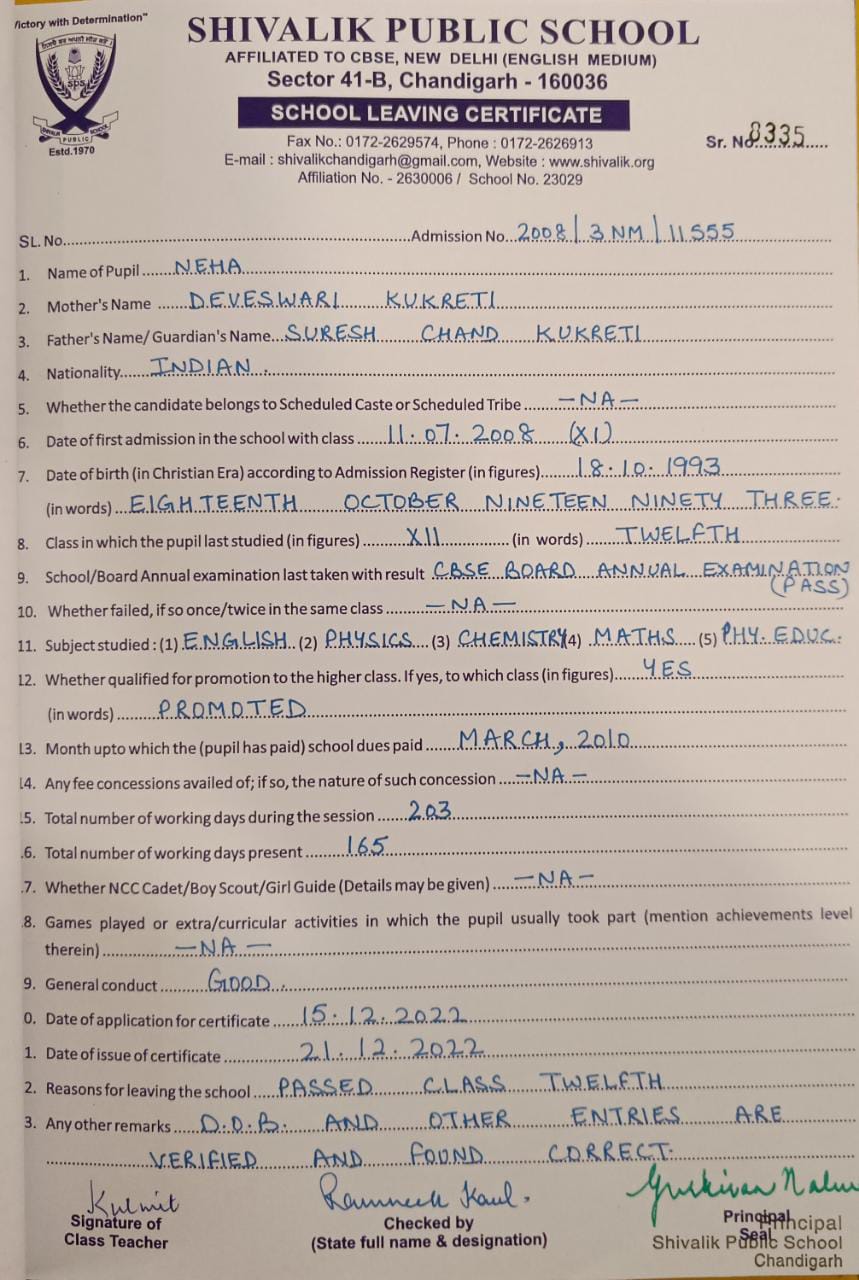 ictory with Determination"
SHIVALIK PUBLIC SCHOOL
AFFILIATED TO CBSE, NEW DELHI (ENGLISH MEDIUM)
Sector 41-B, Chandigarh - 160036
SCHOOL LEAVING CERTIFICATE
SPS
SHIVALIK PUBLIC SCHOOL
Estd.1970
Fax No.: 0172-2629574, Phone : 0172-2626913
E-mail : shivalikchandigarh@gmail.com, Website : www.shivalik.org
Affiliation No. - 2630006 / School No. 23029
Sr. No 8335
SL. No. Admission No. 2008/3 NM/11555
1. Name of Pupil NEHA
2. Mother's Name DEVESWARI KUKRETI
3. Father's Name/ Guardian's Name SURESH CHAND KUKRETI
4. Nationality INDIAN.
5. Whether the candidate belongs to Scheduled Caste or Scheduled Tribe -NA-
6. Date of first admission in the school with class 11.07.2008 (XI)
7. Date of birth (in Christian Era) according to Admission Register (in figures) 18.10.1993
(in words) EIGHTEENTH OCTOBER NINETEEN NINETY THREE.
8. Class in which the pupil last studied (in figures) XII (in words) TWELFTH
9. School/Board Annual examination last taken with result CBSE BOARD ANNUAL EXAMINATION
(PASS)
10. Whether failed, if so once/twice in the same class -NA-
11. Subject studied : (1) ENGLISH (2) PHYSICS (3) CHEMISTRY (4) MATHS (5) PHY. EDUC.
12. Whether qualified for promotion to the higher class. If yes, to which class (in figures) YES
(in words) PROMOTED
13. Month upto which the (pupil has paid) school dues paid MARCH, 2010
14. Any fee concessions availed of; if so, the nature of such concession -NA-
5. Total number of working days during the session 203
6. Total number of working days present 165
7. Whether NCC Cadet/Boy Scout/Girl Guide (Details may be given) -NA-
8. Games played or extra/curricular activities in which the pupil usually took part (mention achievements level
therein) -NA-
9. General conduct GOOD.
0. Date of application for certificate 15.12.2022
1. Date of issue of certificate 21.12.2022
2. Reasons for leaving the school PASSED CLASS TWELFTH
3. Any other remarks D.O.B. AND OTHER ENTRIES ARE
VERIFIED AND FOUND CORRECT.
Kulmit Ramneek Kaul.
Signature of Class Teacher
Checked by
(State full name & designation)
Principal
Seal
Principal
Shivalik Public School
Chandigarh